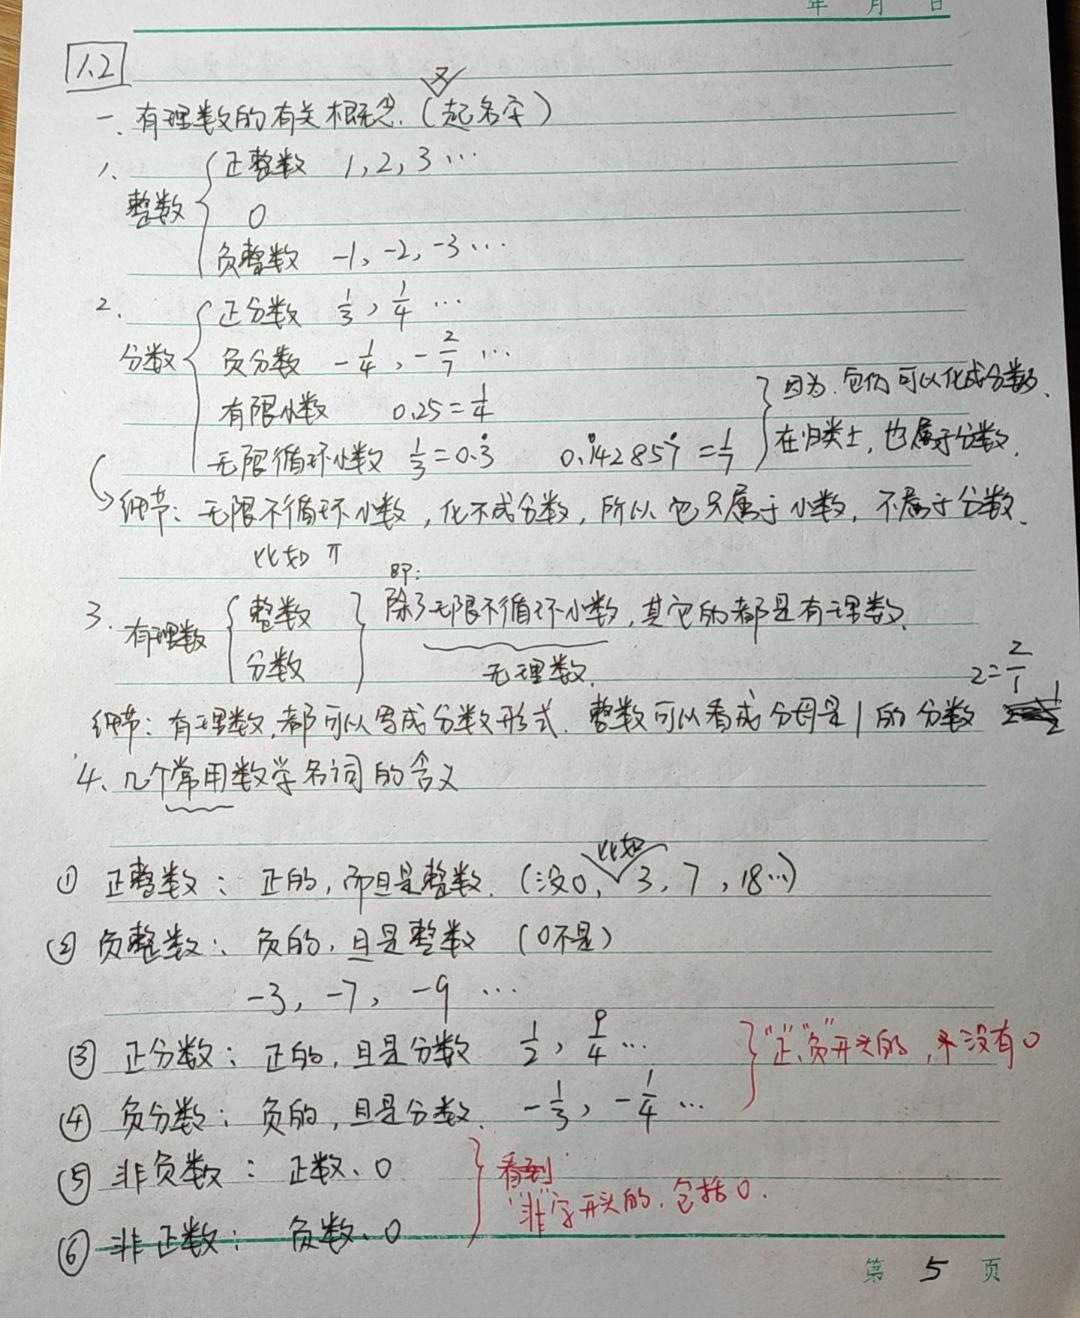 年 月 日
1.2
一、有理数的有关概念.(又起名字)
1、整数
正整数 1, 2, 3 …
0
负整数 -1, -2, -3 …
2. 分数
正分数 1/3, 1/4 …
负分数 -1/4, -2/7 …
有限小数 0.25=1/4
无限循环小数 1/3=0.3̇ 0.1̇42857̇=1/7
因为.它们可以化成分数、
在归类上,也属于分数.
细节:无限不循环小数,化不成分数,所以它只属于小数,不属于分数、
比如 π
3. 有理数
整数
分数
即:
除了无限不循环小数,其它的都是有理数.
无理数.
2=2/1
细节:有理数,都可以写成分数形式.整数可以看成分母是1的分数
4、几个常用数学名词的含义
① 正整数:正的,而且是整数.(没0, 比如 3, 7, 18…)
② 负整数:负的,且是整数 (0不是)
-3, -7, -9 …
③ 正分数:正的,且是分数 1/2, 9/4 …
④ 负分数:负的,且是分数. -1/3, -1/4 …
"正""负"开头的,没有0
⑤ 非负数:正数、0
⑥ 非正数:负数、0
看到
"非"字开头的.包括0.
第 5 页